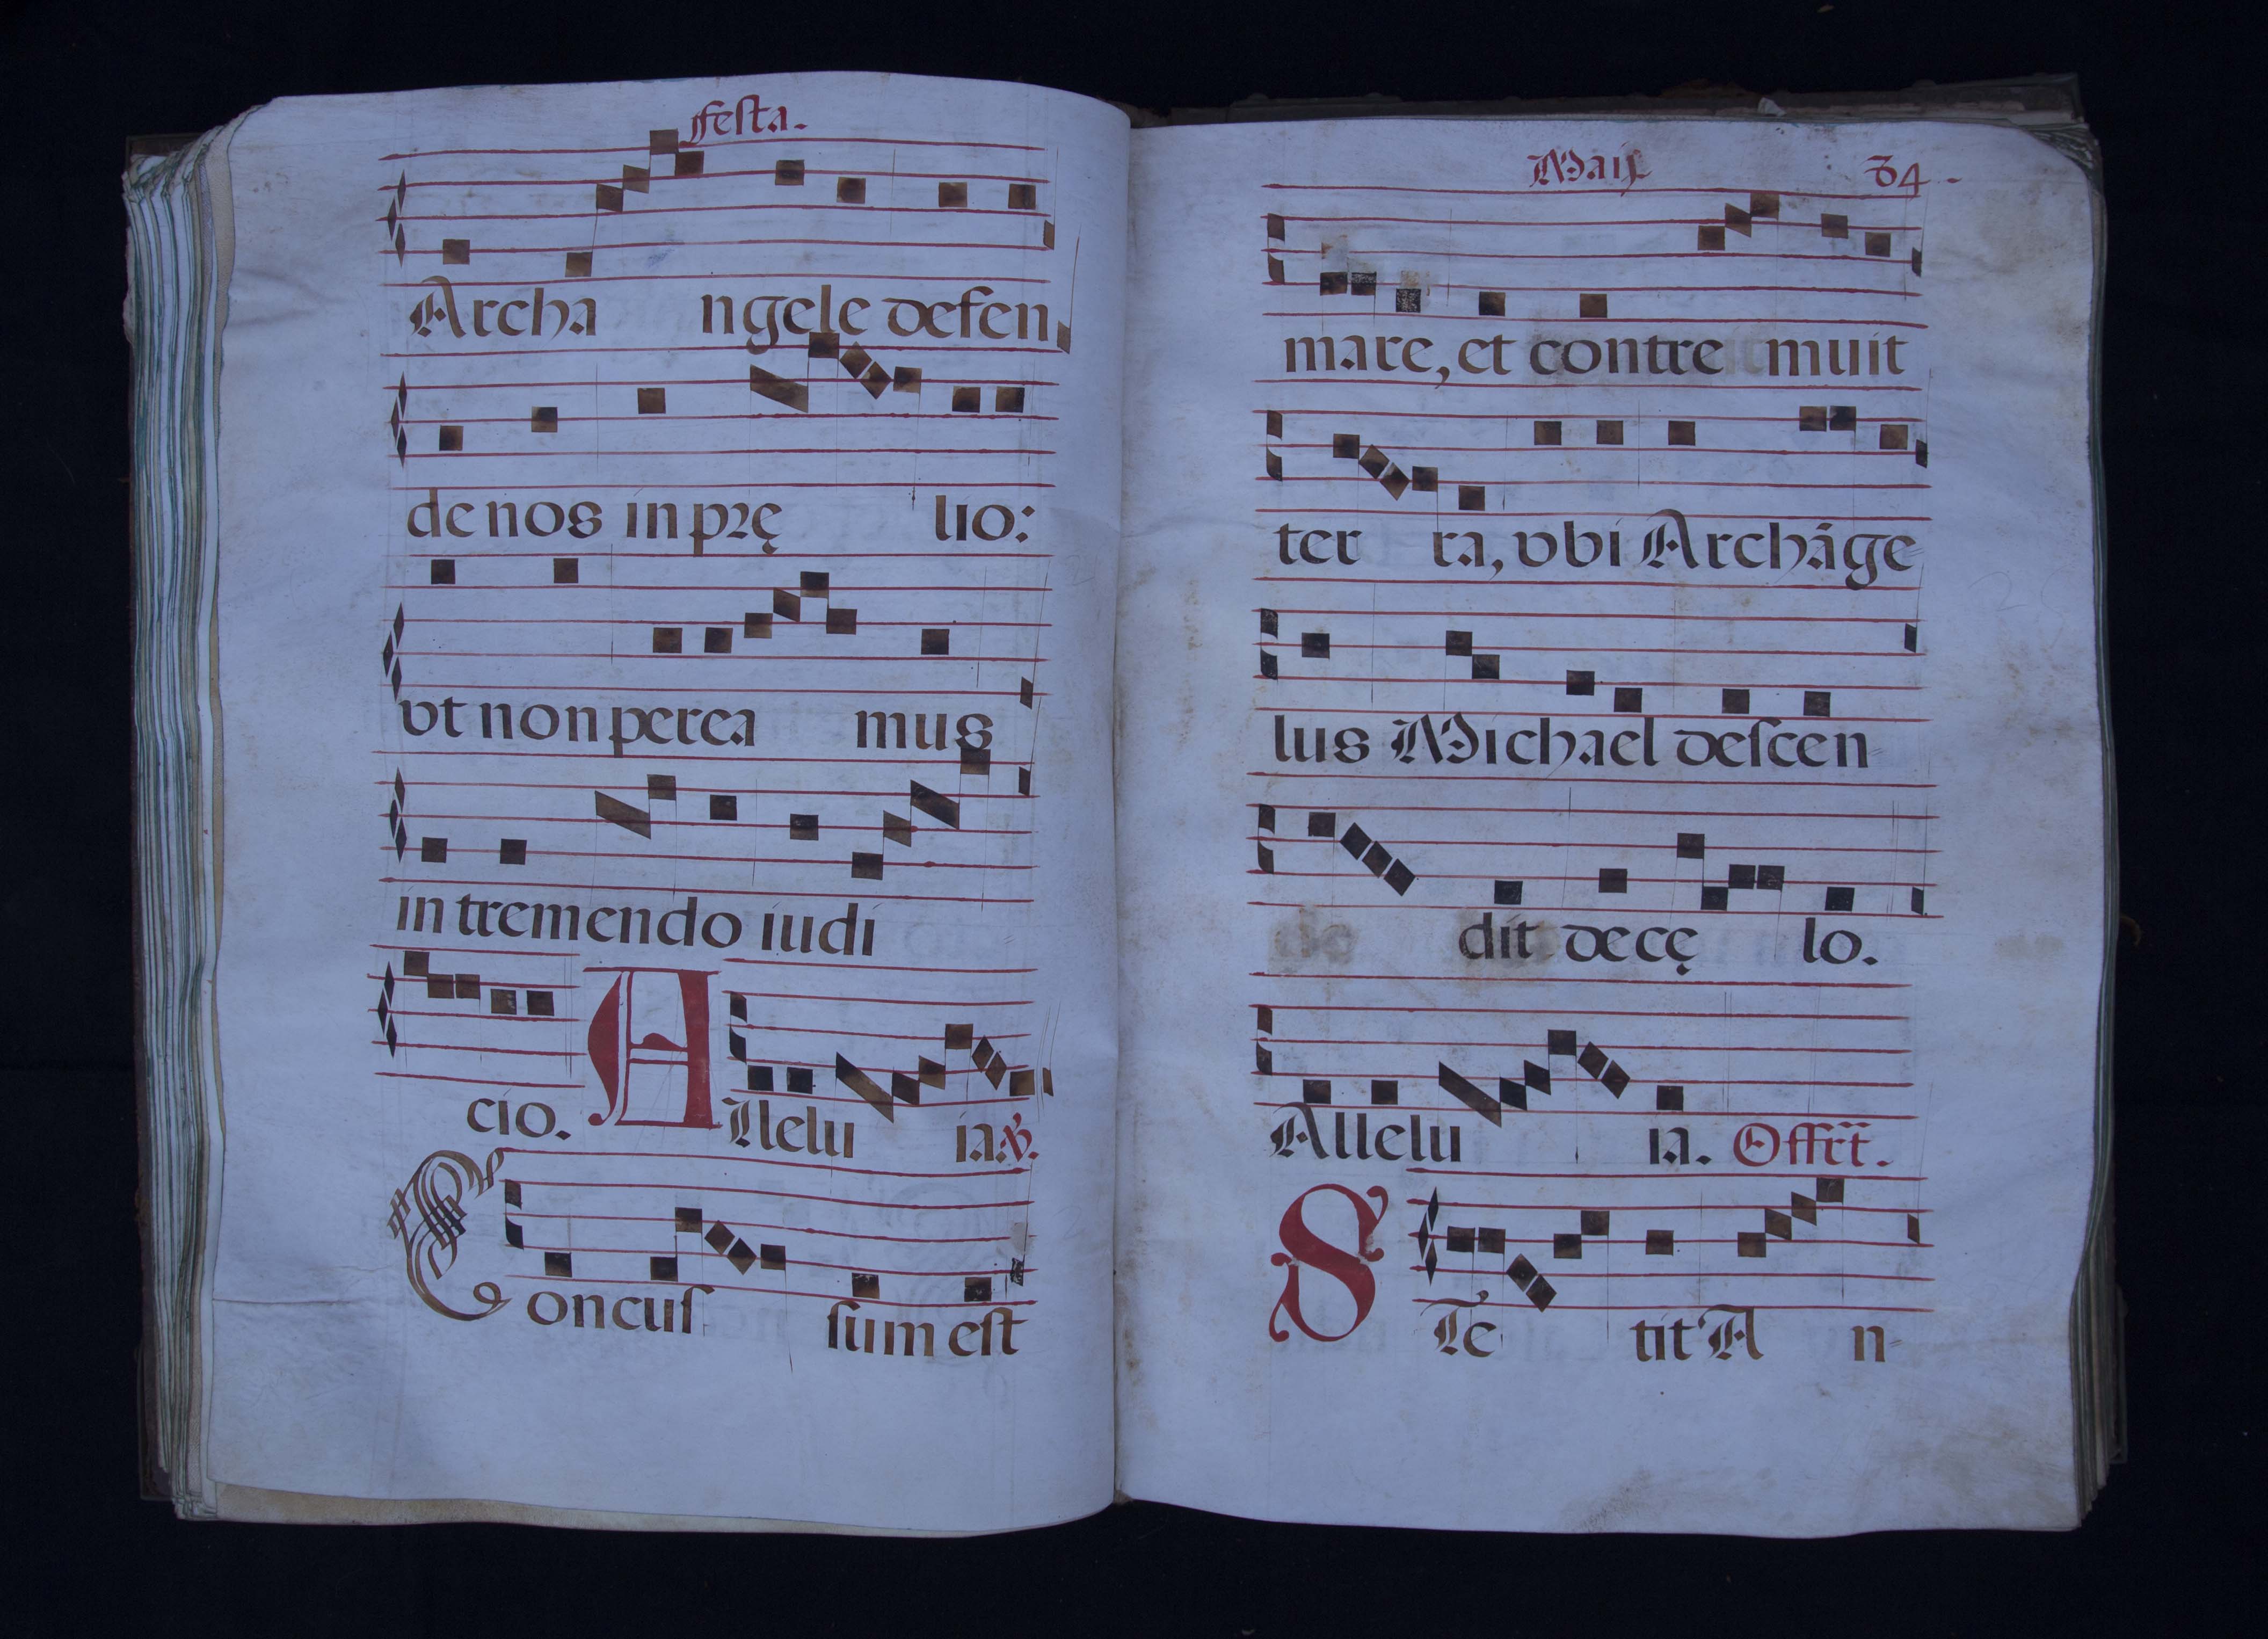 festa.
Archa ngele defen
de nos in prę lio:
vt non perea mus
in tremendo iudi
cio. Allelu ia: ℣.
Concuſ ſum eſt
Maij 84.
mare, et contre muit
ter ra, vbi Archãge
lus Michael deſcen=
dit de cę lo.
Allelu ia. Offr̃t.
STe tit A n=